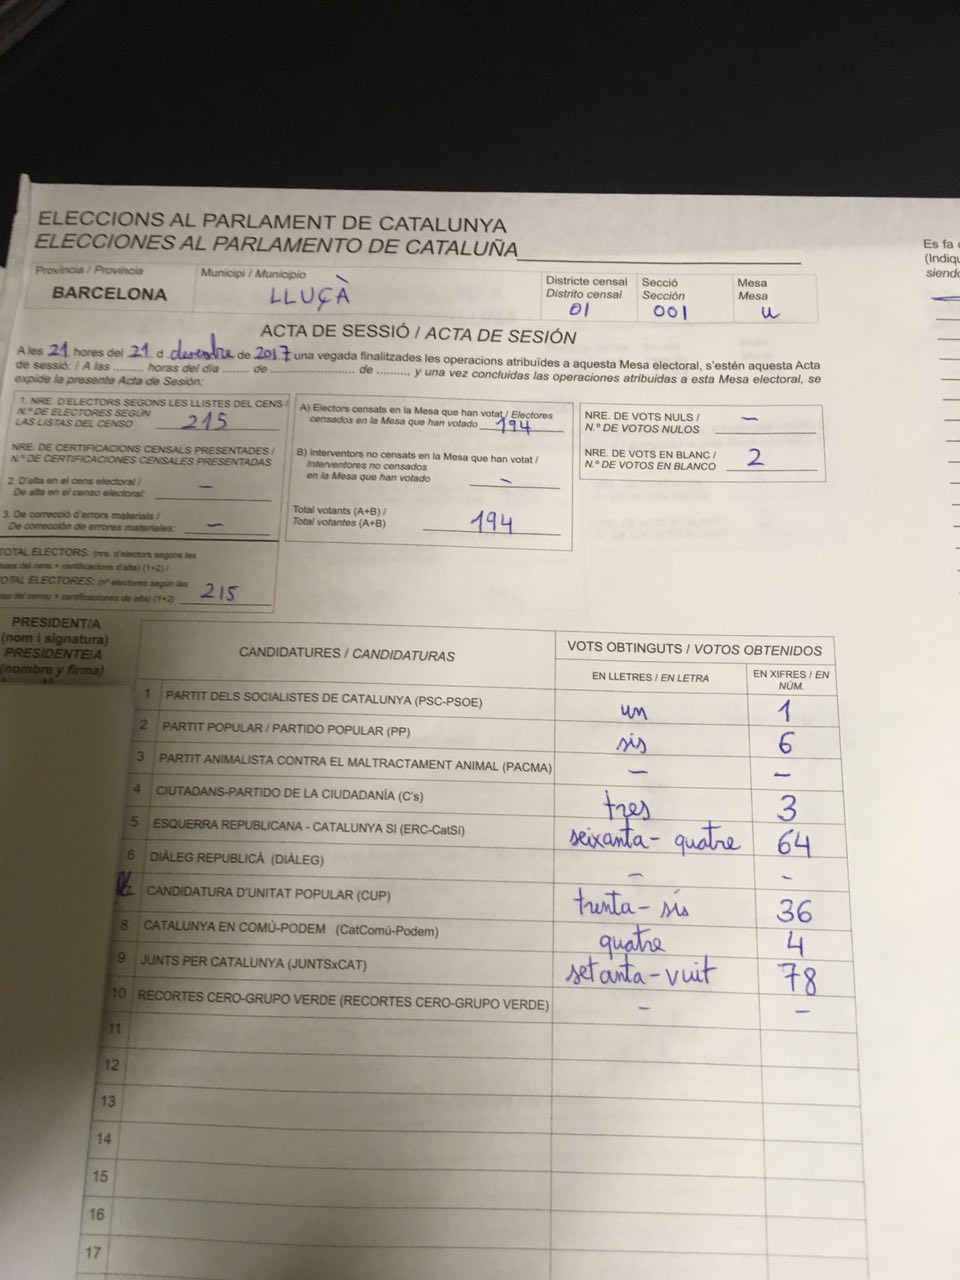 ELECCIONS AL PARLAMENT DE CATALUNYA
ELECCIONES AL PARLAMENTO DE CATALUÑA
Província / Provincia
BARCELONA
Municipi / Municipio
LLUÇÀ
Districte censal
Distrito censal
01
Secció
Sección
001
Mesa
Mesa
U
Es fa
(Indiq
siendo
ACTA DE SESSIÓ / ACTA DE SESIÓN
A les 21 hores del 21 d desembre de 2017 una vegada finalitzades les operacions atribuïdes a aquesta Mesa electoral, s'estén aquesta Acta
de sessió: / A las ......... horas del día ....... de ........................ de .........., y una vez concluidas las operaciones atribuidas a esta Mesa electoral, se
expide la presente Acta de Sesión:
1. NRE. D'ELECTORS SEGONS LES LLISTES DEL CENS /
N.º DE ELECTORES SEGÚN
LAS LISTAS DEL CENSO 215
NRE. DE CERTIFICACIONS CENSALS PRESENTADES /
N.º DE CERTIFICACIONES CENSALES PRESENTADAS
2. D'alta en el cens electoral /
De alta en el censo electoral: –
3. De correcció d'errors materials /
De corrección de errores materiales: –
TOTAL ELECTORS: (nre. d'electors segons les
del cens + certificacions d'alta) (1+2) /
TOTAL ELECTORES: (nº electores según las
del censo + certificaciones de alta) (1+2) 215
A) Electors censats en la Mesa que han votat / Electores
censados en la Mesa que han votado 194
B) Interventors no censats en la Mesa que han votat /
Interventores no censados
en la Mesa que han votado –
Total votants (A+B) /
Total votantes (A+B) 194
NRE. DE VOTS NULS /
N.º DE VOTOS NULOS –
NRE. DE VOTS EN BLANC /
N.º DE VOTOS EN BLANCO 2
PRESIDENT/A
(nom i signatura)
PRESIDENTE/A
(nombre y firma)
CANDIDATURES / CANDIDATURAS
VOTS OBTINGUTS / VOTOS OBTENIDOS
EN LLETRES / EN LETRA
EN XIFRES / EN
NÚM.
1 PARTIT DELS SOCIALISTES DE CATALUNYA (PSC-PSOE) un 1
2 PARTIT POPULAR / PARTIDO POPULAR (PP) sis 6
3 PARTIT ANIMALISTA CONTRA EL MALTRACTAMENT ANIMAL (PACMA) – –
4 CIUTADANS-PARTIDO DE LA CIUDADANÍA (C's) tres 3
5 ESQUERRA REPUBLICANA - CATALUNYA SI (ERC-CatSí) seixanta-quatre 64
6 DIÀLEG REPUBLICÀ (DIÀLEG) – –
CANDIDATURA D'UNITAT POPULAR (CUP) trenta-sis 36
8 CATALUNYA EN COMÚ-PODEM (CatComú-Podem) quatre 4
9 JUNTS PER CATALUNYA (JUNTSxCAT) setanta-vuit 78
10 RECORTES CERO-GRUPO VERDE (RECORTES CERO-GRUPO VERDE) – –
11
12
13
14
15
16
17